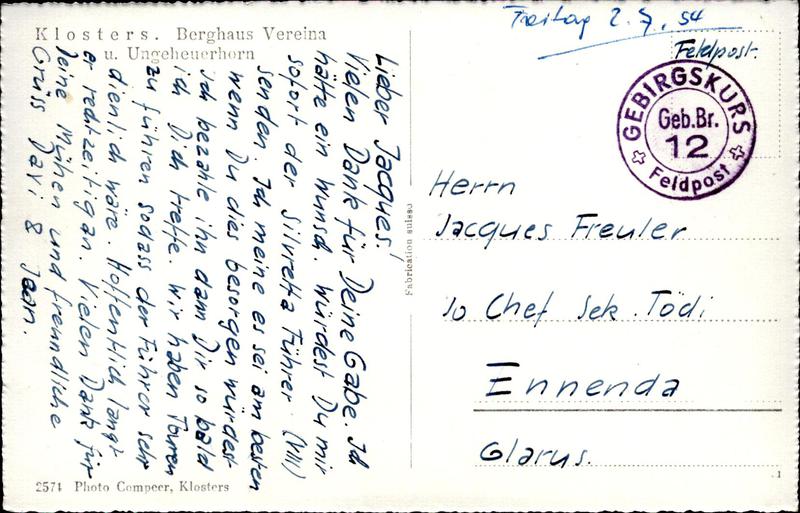 Klosters. Berghaus Vereina
u. Ungeheuerhorn
Lieber Jacques!
Vielen Dank für Deine Gabe. Ich
hätte ein Wunsch. Würdest Du mir
sofort der Silvretta Führer (VIII)
senden. Ich meine es sei am besten
wenn Du dies besorgen würdest
ich bezahle ihn dann Dir so bald
ich Dich treffe. Wir haben Touren
zu führen sodass der Führer sehr
dienlich wäre. Hoffentlich langt
er rechtzeitig an. Vielen Dank für
Deine Mühen und freundliche
Grüss Davi & Jaan.
2574 Photo Compeer, Klosters
Fabrication suisse
Freitag 2. 7. 54
Feldpost.
GEBIRGSKURS
Geb.Br.
12
Feldpost
Herrn
Jacques Freuler
JO Chef Sek. Tödi
Ennenda
Glarus.